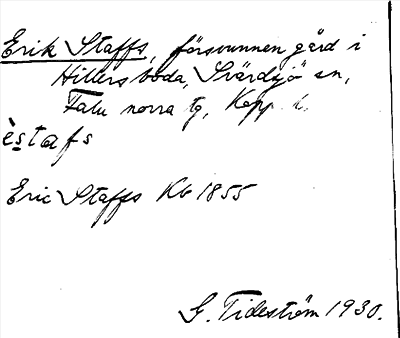 Erik Staffs, försvunnen gård i
Hillersboda, Svärdsjö sn,
Falu norra tg, Kopp. l.
èstafs
Eric Staffs Kb 1855
G. Tideström 1930.